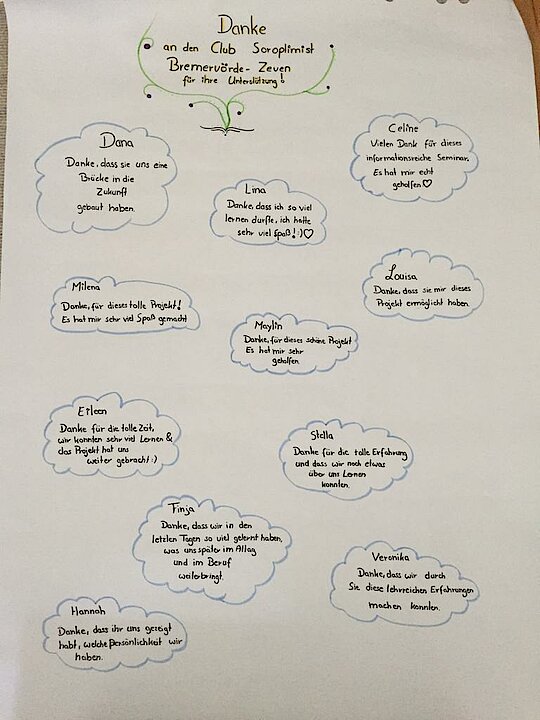 Danke
an den Club Soroptimist
Bremervörde- Zeven
für ihre Unterstützung!
Dana
Danke, dass sie uns eine
Brücke in die
Zukunft
gebaut haben.
Celine
Vielen Dank für dieses
informationsreiche Seminar.
Es hat mir echt
geholfen♡
Lina
Danke, dass ich so viel
lernen durfte, ich hatte
sehr viel Spaß!:)♡
Milena
Danke, für dieses tolle Projekt!
Es hat mir sehr viel Spaß gemacht
Louisa
Danke, dass sie mir dieses
Projekt ermöglicht haben.
Maylin
Danke, für dieses schöne Projekt
Es hat mir sehr
geholfen.
Eileen
Danke für die tolle Zeit,
wir konnten sehr viel Lernen &
das Projekt hat uns
weiter gebracht:)
Stella
Danke für die tolle Erfahrung
und dass wir noch etwas
über uns Lernen
konnten.
Finja
Danke, dass wir in den
letzten Tagen so viel gelernt haben,
was uns später im Alltag
und im Beruf
weiterbringt.
Veronika
Danke, dass wir durch
Sie diese lehrreichen Erfahrungen
machen konnten.
Hannah
Danke, dass ihr uns gezeigt
habt, welche Persönlichkeit wir
haben.